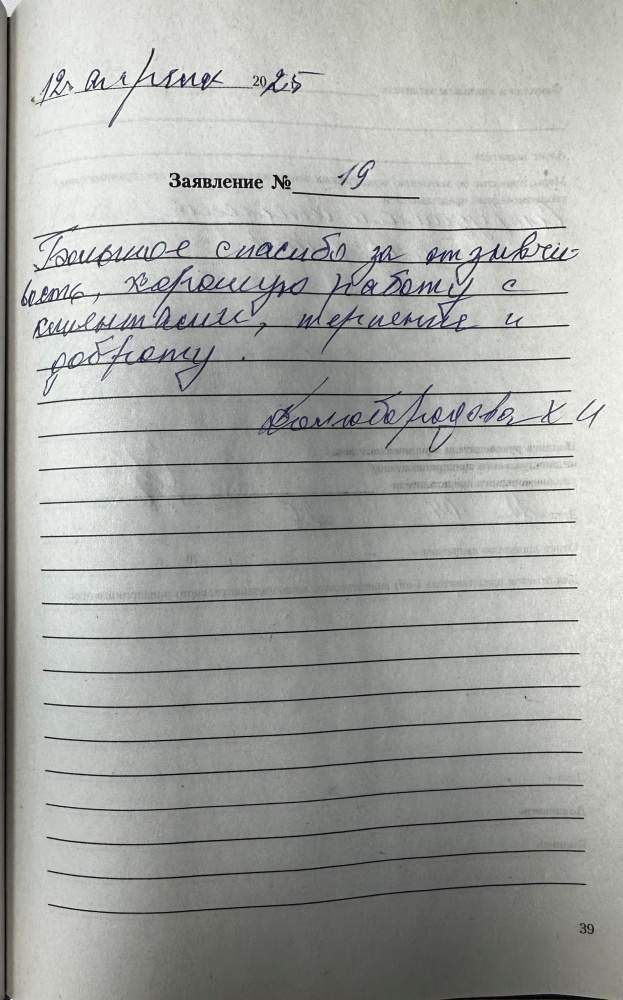 12 апреля 2025
Заявление № 19
Большое спасибо за отзывчи-
вость, хорошую работу с
клиентами, терпение и
доброту.
Х И
39